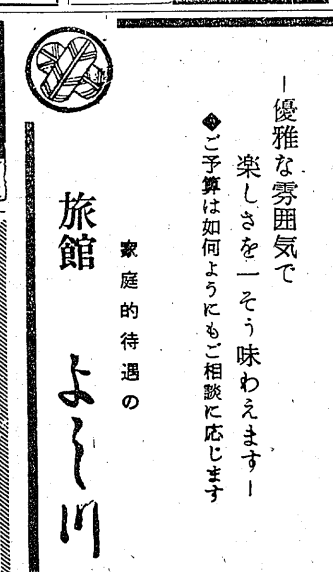 ー優雅な雰囲気で
楽しさを一そう味わえますー
◆ご予算は如何ようにもご相談に応じます
家庭的待遇の
旅館 よし川